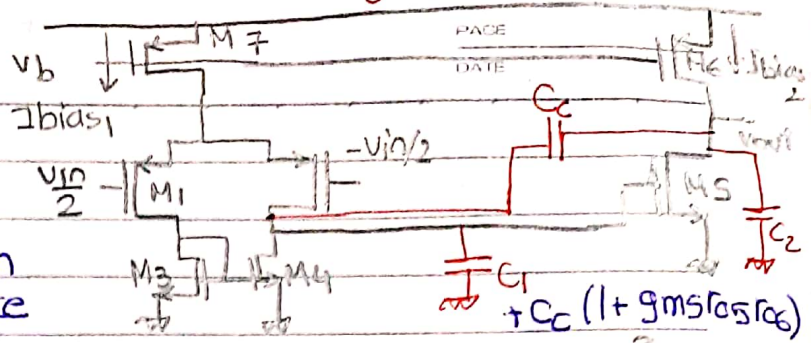 M7
PAGE
DATE
Vb
M6
Ibias2
Ibias1
Cc
Vout
-Vin/2
Vin/2
M1
M5
C2
M3
M4
C1
+ Cc (1 + gm5ro5ro6)
n
e